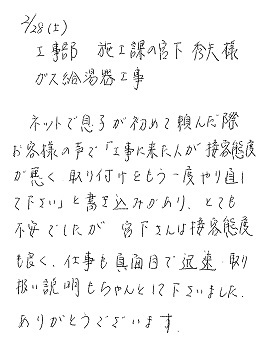 2/28(土)
工事部 施工課の宮下 秀夫様
ガス給湯器工事
ネットで息子が初めて頼んだ際
お客様の声で「工事に来た人が接客態度
が悪く 取り付けをもう一度やり直し
て下さい」と書き込みがあり、とても
不安でしたが 宮下さんは接客態度
も良く、仕事も真面目で迅速 取り
扱い説明もちゃんとして下さいました。
ありがとうございます。